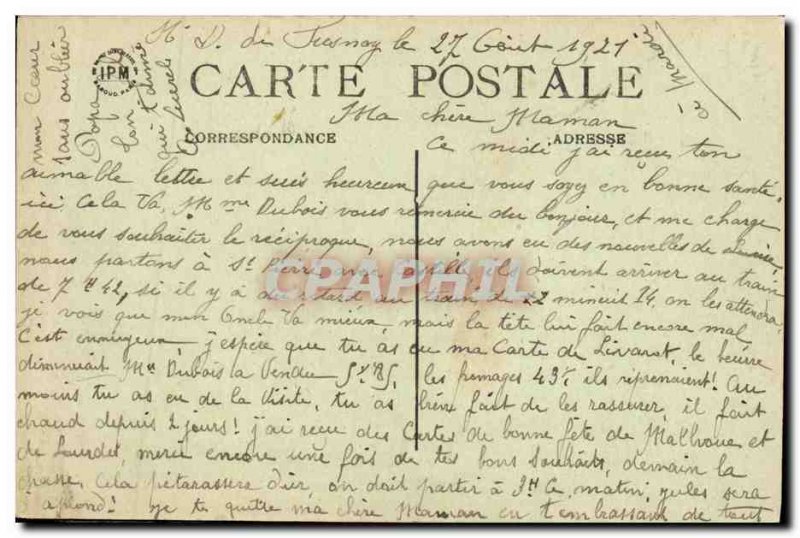 N. D. de Fresnay le 27 Août 1921
ce mardi
CARTE POSTALE
IPM
Ma chère Maman
CORRESPONDANCE
ADRESSE
Ce midi j'ai reçu ton
aimable lettre et suis heureux que vous soyez en bonne santé,
ici cela va, Mme Dubois vous remercie du bonjour, et me charge
de vous souhaiter le réciproque, nous avons eu des nouvelles de
nous partons à St Pierre ils doivent arriver au train
de 7H42, si il y à du retard au train de 22 minuit 14 on les attendra
je vois que mon Oncle va mieux, mais la tête lui fait encore mal
C'est ennuyeux, j'espère que tu as eu ma Carte de Livarot, le beurre
diminuait Me Dubois a vendu les fromages 43f ils reprenaient! Au
moins tu as eu de la visite, tu as bien fait de les rassurer, il fait
chaud depuis 2 jours! j'ai reçu des Cartes de bonne fête de et
de Lourdes, merci encore une fois de tes bons souhaits, demain la
chasse, cela pétarassera d'ur, on doit partir à 3H Ce matin, jules sera
d'aplomb! je te quitte ma chère Maman en t'embrassant de tout
mon Coeur
sans oublier
Papa
Ton
qui t'aime
CPAPHIL